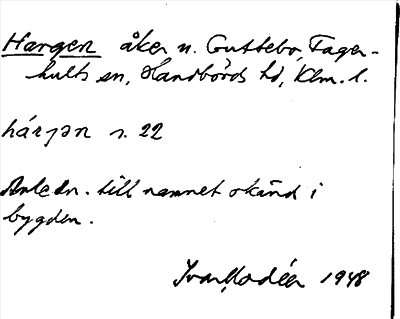 Hargen åker n. Guttebo, Fager-
hults sn, Handbörds hd, Klm. l.
hárjən s. 22
Anledn. till namnet okänd i
bygden.
Ivar Modéer 1948